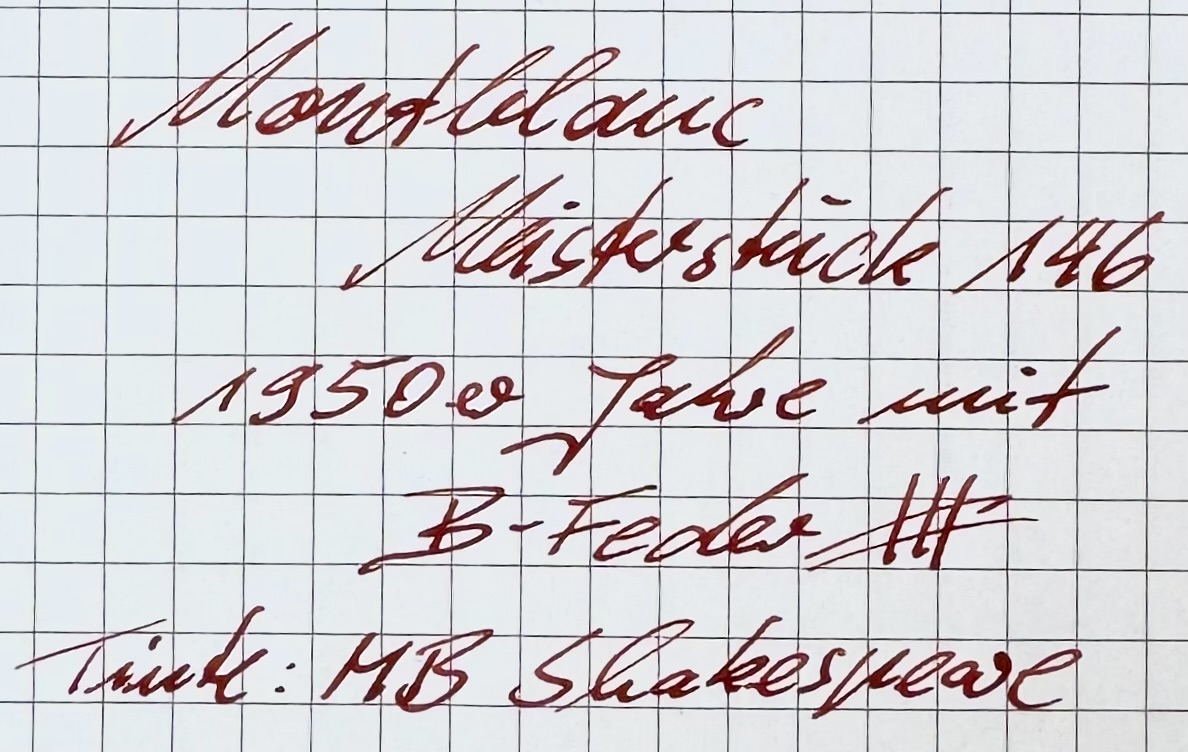 Montblanc
Meisterstück 146
1950er Jahre mit
B-Feder
Tinte: MB Shakespeare